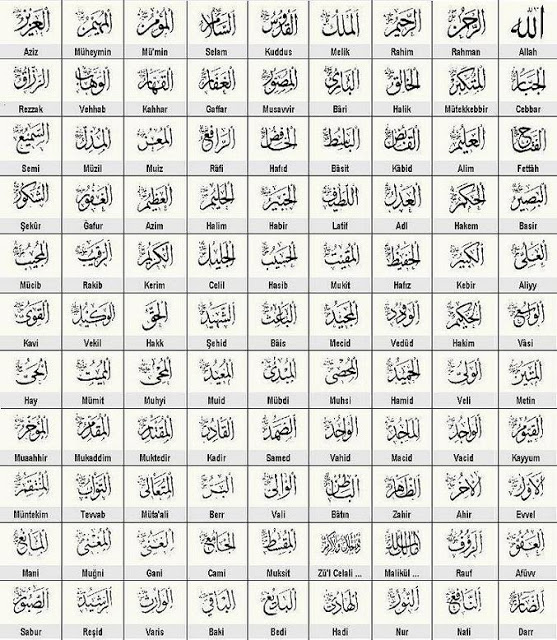 الله الرحمن الرحيم الملك القدوس السلام المؤمن المهيمن العزيز
Aziz Müheymin Mü'min Selam Kuddus Melik Rahim Rahman Allah
الجبار المتكبر الخالق البارئ المصور الغفار القهار الوهاب الرزاق
Rezzak Vehhab Kahhar Gaffar Musavvir Bâri Halik Mütekkebbir Cebbar
الفتاح العليم القابض الباسط الخافض الرافع المعز المذل السميع
Semi Müzil Muiz Râfi Hafıd Bâsit Kâbid Alim Fettâh
البصير الحكم العدل اللطيف الخبير الحليم العظيم الغفور الشكور
Şekûr Gafur Azim Halim Habir Latif Adl Hakem Basir
العلي الكبير الحفيظ المقيت الحسيب الجليل الكريم الرقيب المجيب
Mücib Rakib Kerim Celil Hasib Mukit Hafız Kebir Aliyy
الواسع الحكيم الودود المجيد الباعث الشهيد الحق الوكيل القوي
Kavi Vekil Hakk Şehid Bâis Mecid Vedûd Hakim Vâsi
المتين الولي الحميد المحصي المبدئ المعيد المحيي المميت الحي
Hay Mümit Muhyi Muid Mübdi Muhsi Hamid Veli Metin
القيوم الواجد الماجد الواحد الصمد القادر المقتدر المقدم المؤخر
Muaahhir Mukaddim Muktedir Kadir Samed Vahid Macid Vacid Kayyum
الأول الآخر الظاهر الباطن الوالي البر المتعالي التواب المنتقم
Müntekim Tevvab Müta'ali Berr Vali Bâtın Zahir Ahir Evvel
العفو الرؤف مالك الملك ذو الجلال والإكرام المقسط الجامع الغني المغني المانع
Mani Muğni Gani Cami Muksit Zü'l Celali ... Malikül ... Rauf Afüvv
الضار النافع النور الهادي البديع الباقي الوارث الرشيد الصبور
Sabur Reşid Varis Baki Bedi Hadi Nur Nafi Darr